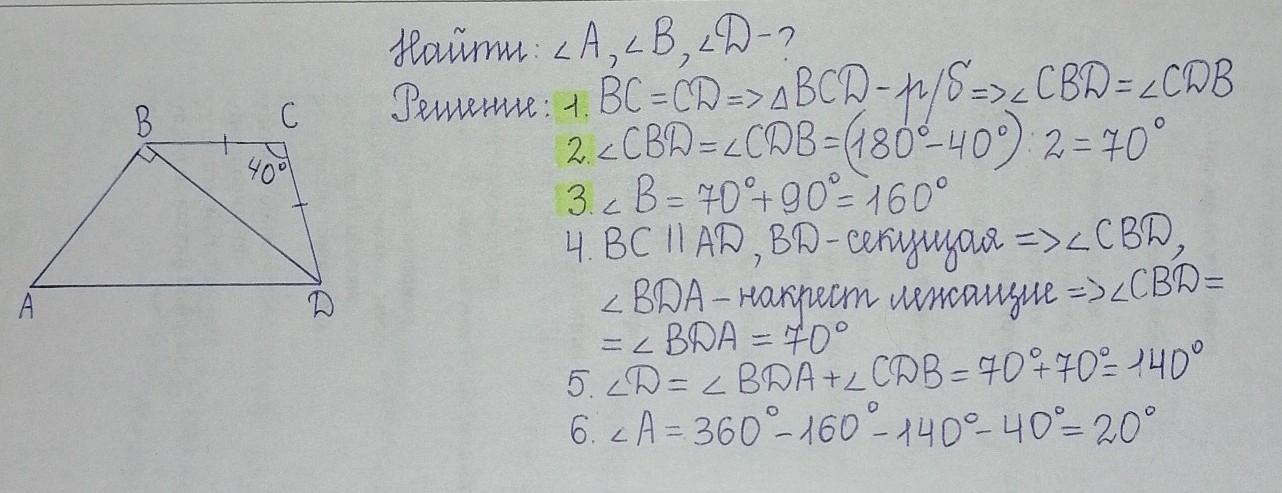 Найти: ∠A, ∠B, ∠D-?
Решение: 1. BC=CD=>△BCD-р/б=>∠CBD=∠CDB
2. ∠CBD=∠CDB=(180°-40°):2=70°
3. ∠B=70°+90°=160°
4. BC||AD, BD-секущая=>∠CBD,
∠BDA-накрест лежащие=>∠CBD=
=∠BDA=70°
5. ∠D=∠BDA+∠CDB=70°+70°=140°
6. ∠A=360°-160°-140°-40°=20°
B C
40°
A D